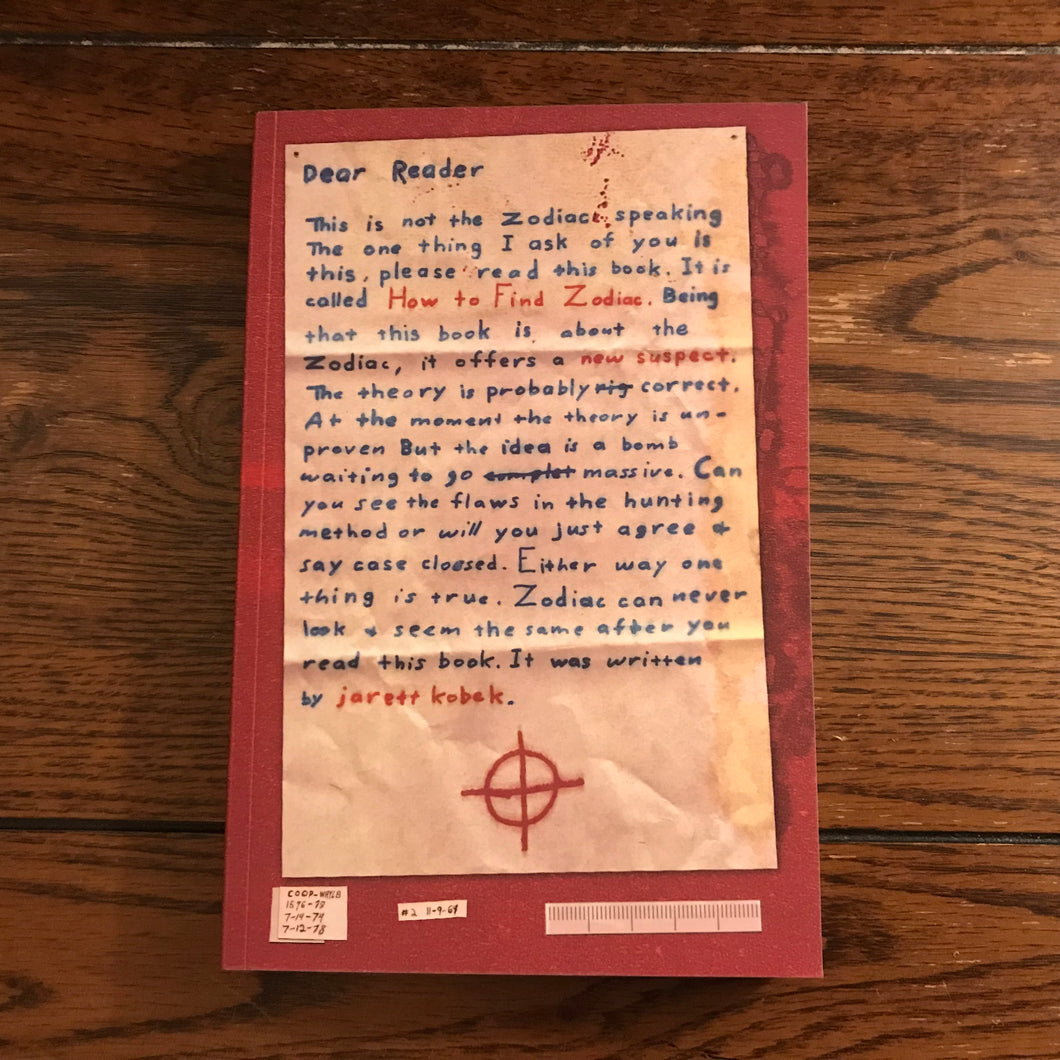 Dear Reader
This is not the Zodiac speaking
The one thing I ask of you is
this, please read this book. It is
called How to Find Zodiac. Being
that this book is about the
Zodiac, it offers a new suspect.
The theory is probably rig correct.
At the moment the theory is un-
proven But the idea is a bomb
waiting to go complet massive. Can
you see the flaws in the hunting
method or will you just agree &
say case cloesed. Either way one
thing is true. Zodiac can never
look & seem the same after you
read this book. It was written
by jarett kobek.
COOP-
1596-78
7-14-74
7-12-78
#2 11-9-69